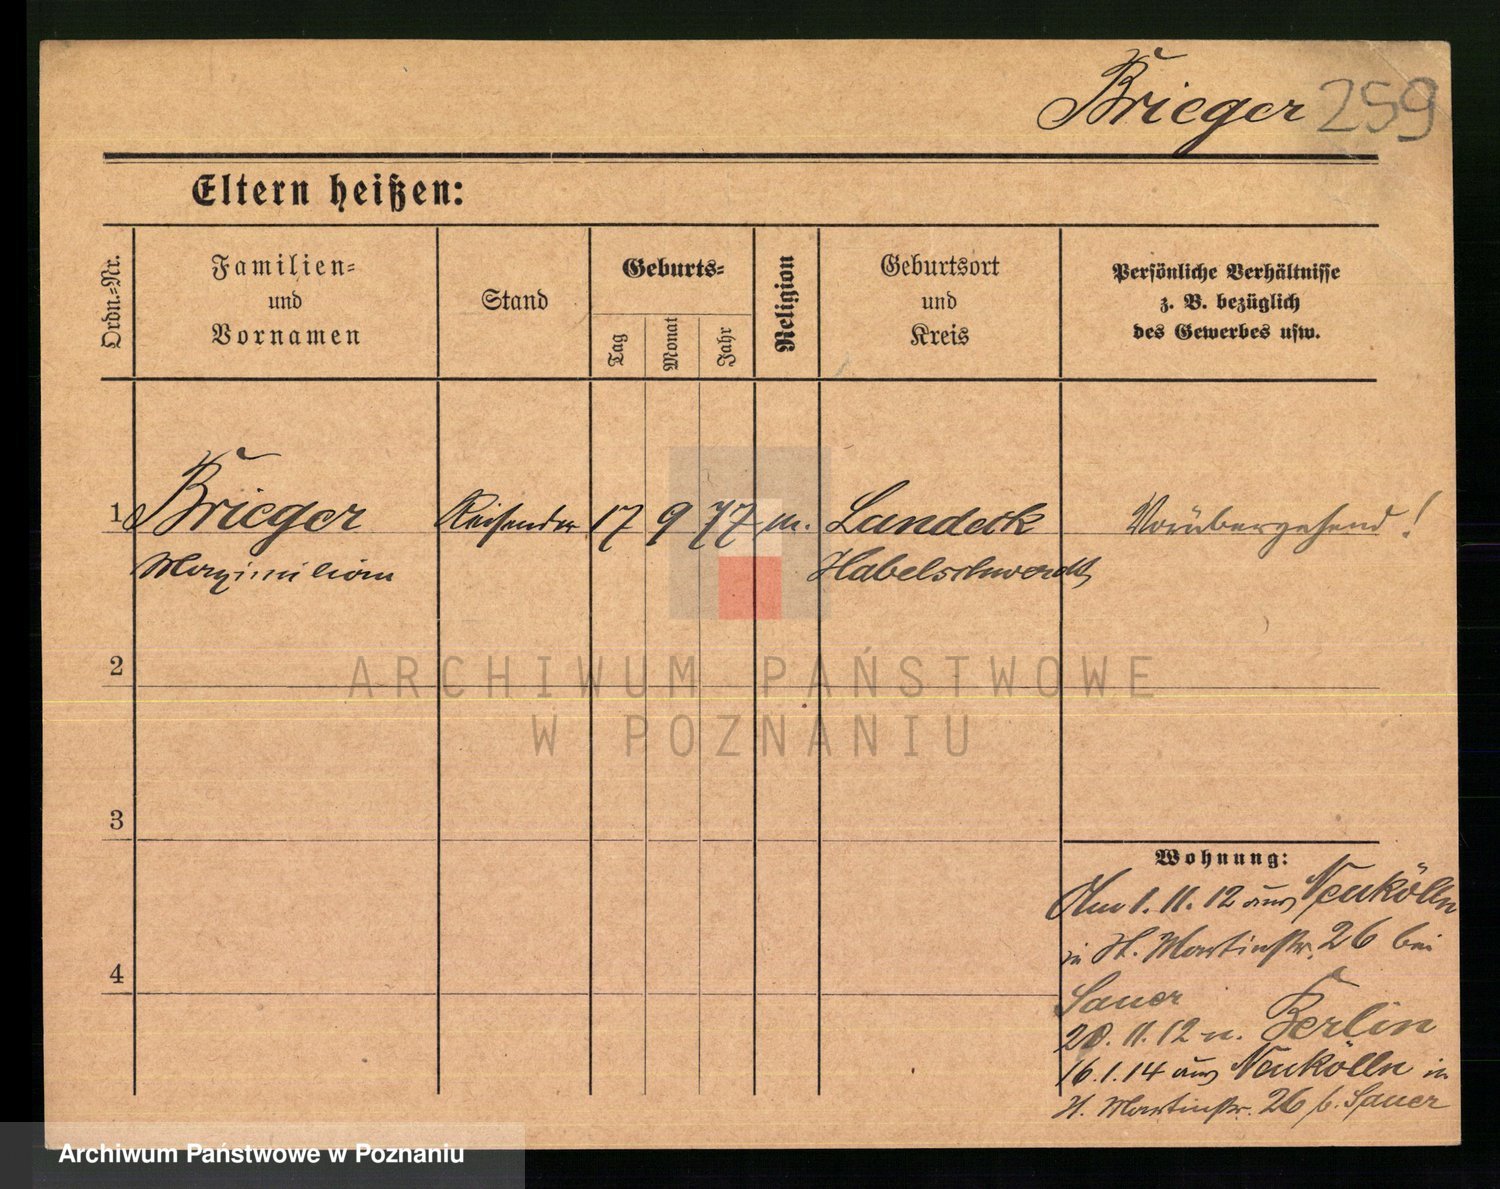 Brieger 259
Eltern heißen:
Ordn.-Nr.
Familien-
und
Vornamen
Stand
Geburts-
Tag
Monat
Jahr
Religion
Geburtsort
und
Kreis
Persönliche Verhältnisse
z. B. bezüglich
des Gewerbes usw.
1 Brieger Reisender 17 9 77 m. Landeck Vorübergehend!
Maximilian Habelschwerdt
2
ARCHIWUM PAŃSTWOWE
W POZNANIU
3
Wohnung:
Am 1. 11. 12 aus Neukölln
in St. Martinstr. 26 bei
4
Sauer
20. 11. 12 n. Berlin
16. 1. 14 aus Neukölln in
St. Martinstr. 26 b. Sauer
Archiwum Państwowe w Poznaniu